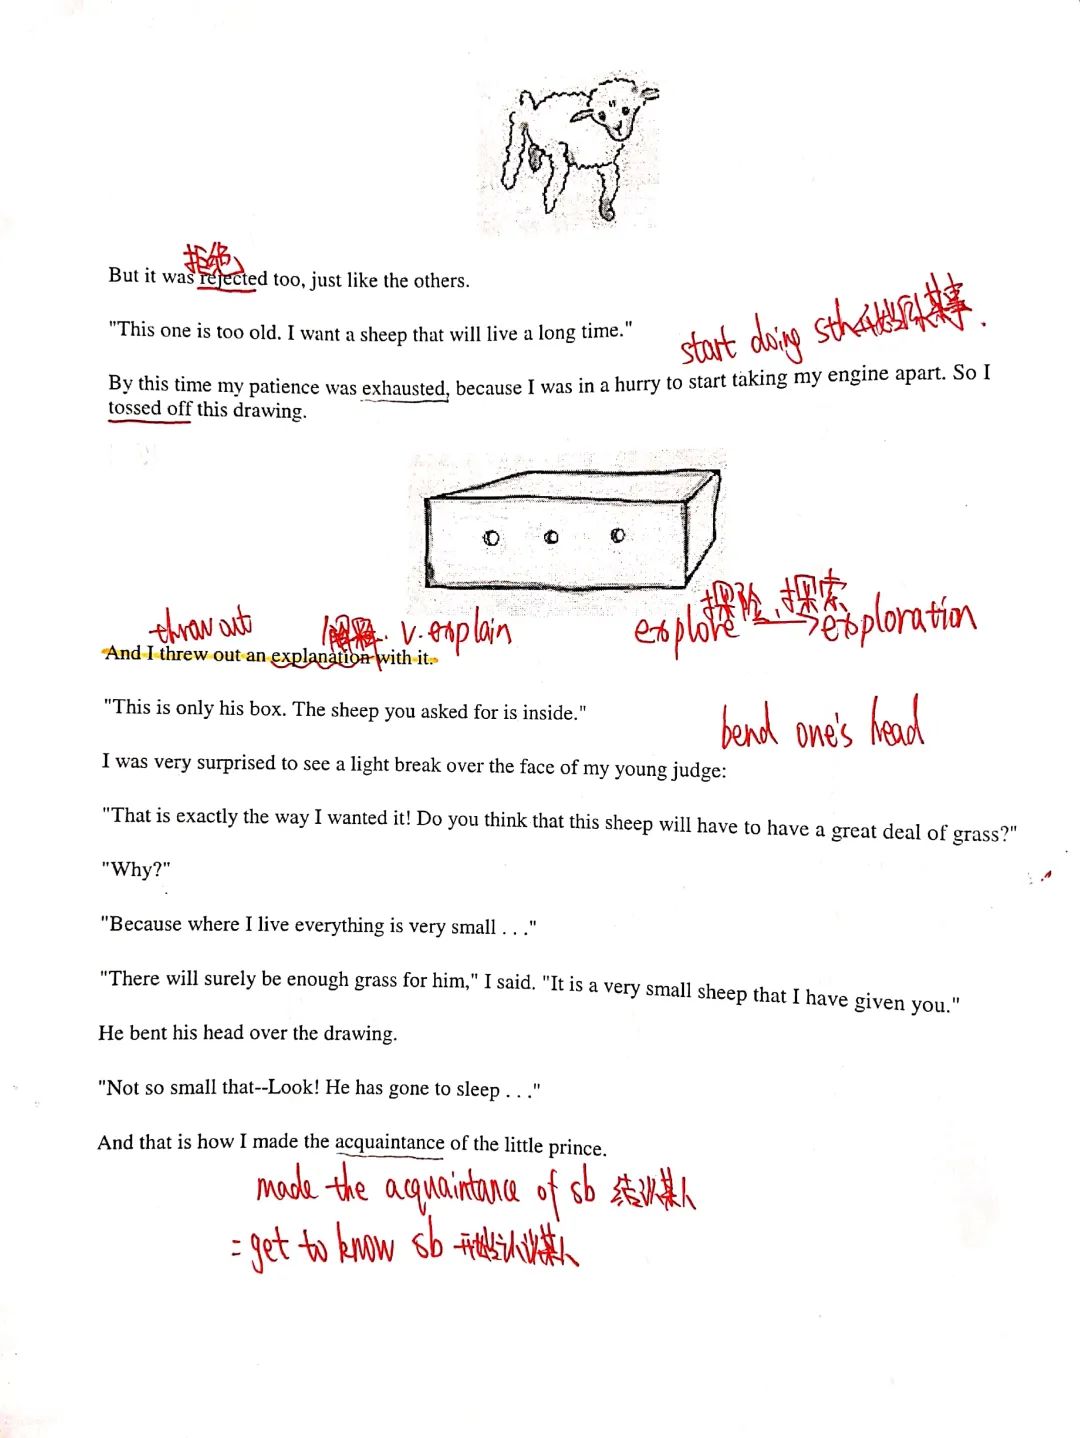 拒绝
But it was rejected too, just like the others.
"This one is too old. I want a sheep that will live a long time."
start doing sth 开始做某事.
By this time my patience was exhausted, because I was in a hurry to start taking my engine apart. So I
tossed off this drawing.
探险、探索
throw out 解释. v. explain explore → exploration
And I threw out an explanation with it.
"This is only his box. The sheep you asked for is inside."
bend one's head
I was very surprised to see a light break over the face of my young judge:
"That is exactly the way I wanted it! Do you think that this sheep will have to have a great deal of grass?"
"Why?"
"Because where I live everything is very small . . ."
"There will surely be enough grass for him," I said. "It is a very small sheep that I have given you."
He bent his head over the drawing.
"Not so small that--Look! He has gone to sleep . . ."
And that is how I made the acquaintance of the little prince.
made the acquaintance of sb 结识某人
= get to know sb 开始认识某人